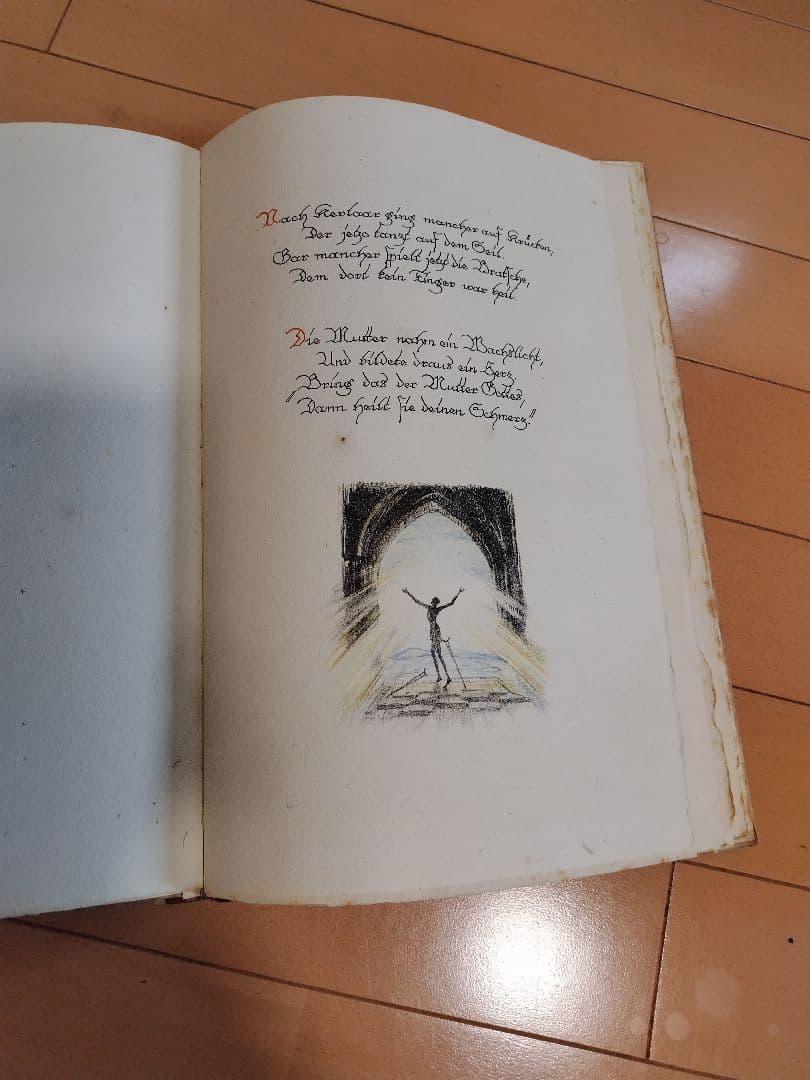 Nach Kevlaar ging mancher auf Krücken,
Der jetzo tanzt auf dem Seil.
Gar mancher spielt jetzt die Bratsche,
Dem dort kein Finger war heil.
Die Mutter nahm ein Wachslicht,
Und bildete draus ein Herz.
"Bring das der Mutter Gottes,
"Dann heilt sie deinen Schmerz."